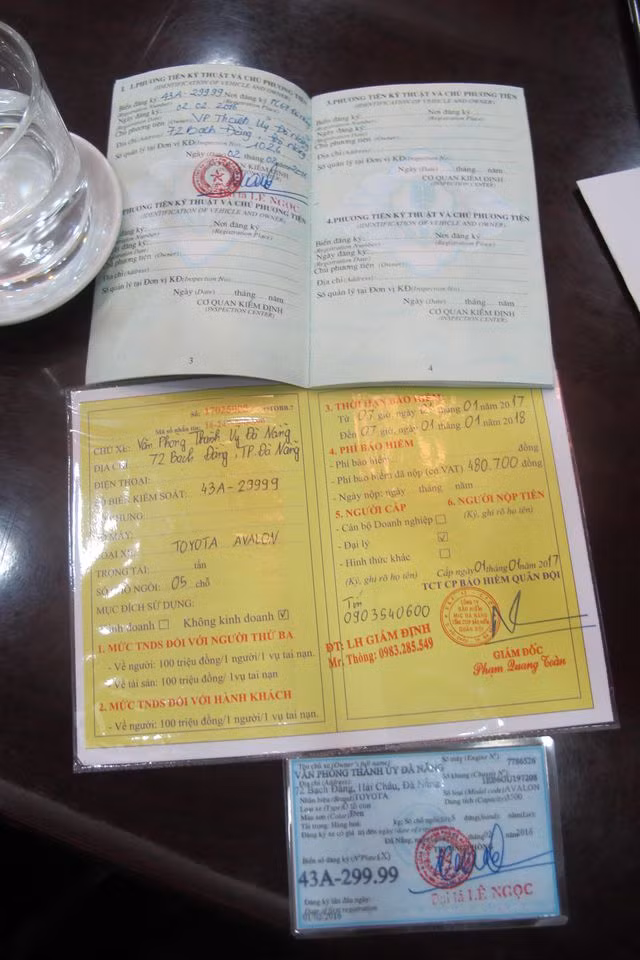 1. PHƯƠNG TIỆN KỸ THUẬT VÀ CHỦ PHƯƠNG TIỆN
(IDENTIFICATION OF VEHICLE AND OWNER)
Biển đăng ký: 43A-29999 Nơi đăng ký
(Registration Number)
Ngày đăng ký: 02.02.2016
(Registration Date)
Chủ phương tiện (Owner): VP Thành Ủy Đà Nẵng
Địa chỉ (Address): 72 Bạch Đằng, Đà Nẵng
Số quản lý tại Đơn vị KĐ (Inspection No):
Ngày (Date) 02 tháng 02 năm
CƠ QUAN KIỂM ĐỊNH
Đại tá LÊ NGỌC
PHƯƠNG TIỆN KỸ THUẬT VÀ CHỦ PHƯƠNG TIỆN
(IDENTIFICATION OF VEHICLE AND OWNER)
Biển đăng ký: Nơi đăng ký
(Registration Number) (Registration Place)
Ngày đăng ký:
(Registration Date)
Chủ phương tiện (Owner)
Địa chỉ (Address)
Số quản lý tại Đơn vị KĐ (Inspection No):
Ngày (Date) tháng năm
CƠ QUAN KIỂM ĐỊNH
(INSPECTION CENTER)
3
3.PHƯƠNG TIỆN KỸ THUẬT VÀ CHỦ PHƯƠNG TIỆN
(IDENTIFICATION OF VEHICLE AND OWNER)
Biển đăng ký: Nơi đăng ký
(Registration Number) (Registration Place)
Ngày đăng ký:
(Registration Date)
Chủ phương tiện (Owner)
Địa chỉ (Address)
Số quản lý tại Đơn vị KĐ (Inspection No):
Ngày (Date) tháng năm
CƠ QUAN KIỂM ĐỊNH
(INSPECTION CENTER)
4.PHƯƠNG TIỆN KỸ THUẬT VÀ CHỦ PHƯƠNG TIỆN
(IDENTIFICATION OF VEHICLE AND OWNER)
Biển đăng ký: Nơi đăng ký
(Registration Number) (Registration Place)
Ngày đăng ký:
(Registration Date)
Chủ phương tiện (Owner)
Địa chỉ (Address)
Số quản lý tại Đơn vị KĐ (Inspection No):
Ngày (Date) tháng năm
CƠ QUAN KIỂM ĐỊNH
(INSPECTION CENTER)
4
Số:
Mã số nhân thọ:
CHỦ XE: Văn Phòng Thành Uỷ Đà Nẵng
ĐỊA CHỈ: 72 Bạch Đằng TP. Đà Nẵng
ĐIỆN THOẠI:
SỐ BIỂN KIỂM SOÁT: 43A-29999
SỐ KHUNG:
SỐ MÁY:
LOẠI XE: TOYOTA AVALON
TRỌNG TẢI: tấn
SỐ CHỖ NGỒI: 05 chỗ
MỤC ĐÍCH SỬ DỤNG:
Kinh doanh Không kinh doanh
1. MỨC TNDS ĐỐI VỚI NGƯỜI THỨ BA
- Về người: 100 triệu đồng/1 người/1 vụ tai nạn.
- Về tài sản: 100 triệu đồng/1 vụ tai nạn.
2. MỨC TNDS ĐỐI VỚI HÀNH KHÁCH
- Về người: 100 triệu đồng/1 người/1 vụ tai nạn.
3. THỜI HẠN BẢO HIỂM
Từ 07 giờ, ngày 01 tháng 01 năm 2017
Đến 07 giờ, ngày 01 tháng 01 năm 2018
4. PHÍ BẢO HIỂM
- Phí bảo hiểm: đồng
- Phí bảo hiểm đã nộp (có VAT) 480.700 đồng
- Ngày nộp: ngày tháng năm
5. NGƯỜI CẤP 6. NGƯỜI NỘP TIỀN
- Cán bộ Doanh nghiệp (Ký, ghi rõ họ tên)
- Đại lý
- Hình thức khác
(Ký, ghi rõ họ tên) Cấp ngày 01 tháng 01 năm 2017
TCT CP BẢO HIỂM QUÂN ĐỘI
0903540600
CÔNG TY
BẢO HIỂM
MIC ĐÀ NẴNG
ĐT: LH GIÁM ĐỊNH
Mr. Thông: 0983.285.549
GIÁM ĐỐC
Phạm Quang Toàn
Tên chủ xe (Owner's full name) Số máy (Engine N°)
VĂN PHÒNG THÀNH ỦY ĐÀ NẴNG 7786526
Địa chỉ (Address) Số khung (Chassis N°)
72 Bạch Đằng, Hải Châu, Đà Nẵng
Nhãn hiệu (Brand) TOYOTA Số loại (Model code) AVALON
Loại xe (Type) Ô tô con Dung tích (Capacity) 3500
Màu sơn (Color) Đen
Tải trọng: Hàng hoá: kg; Số chỗ ngồi: 5
Đà Nẵng, năm 2016
Biển số đăng ký (N° Plate)
43A-299.99
Đăng ký lần đầu ngày
Date of first registration
01/02/2016
Đại tá LÊ NGỌC